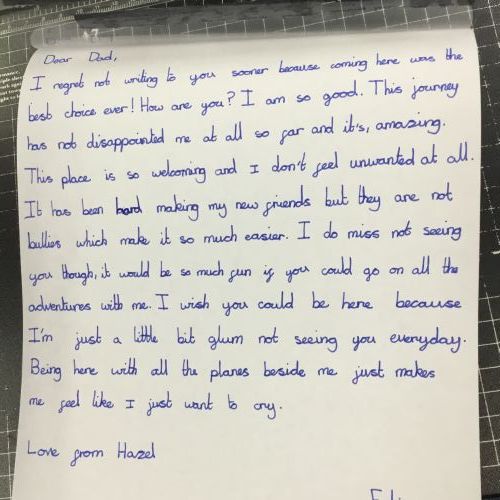 Dear Dad,
I regret not writing to you sooner because coming here was the
best choice ever! How are you? I am so good. This journey
has not disappointed me at all so far and it's, amazing.
This place is so welcoming and I don't feel unwanted at all.
It has been hard making my new friends but they are not
bullies which make it so much easier. I do miss not seeing
you though, it would be so much fun if you could go on all the
adventures with me. I wish you could be here because
I'm just a little bit glum not seeing you everyday.
Being here with all the planes beside me just makes
me feel like I just want to cry.
Love from Hazel